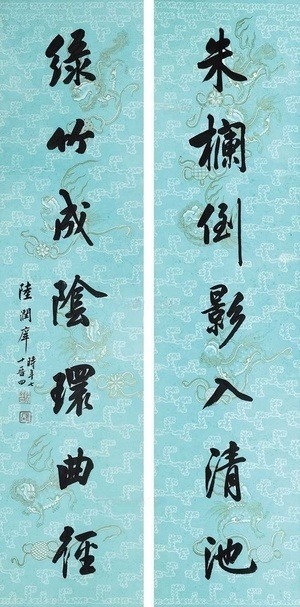 朱欄倒影入清池
綠竹成陰環曲徑
陸潤庠
時年七
十有四